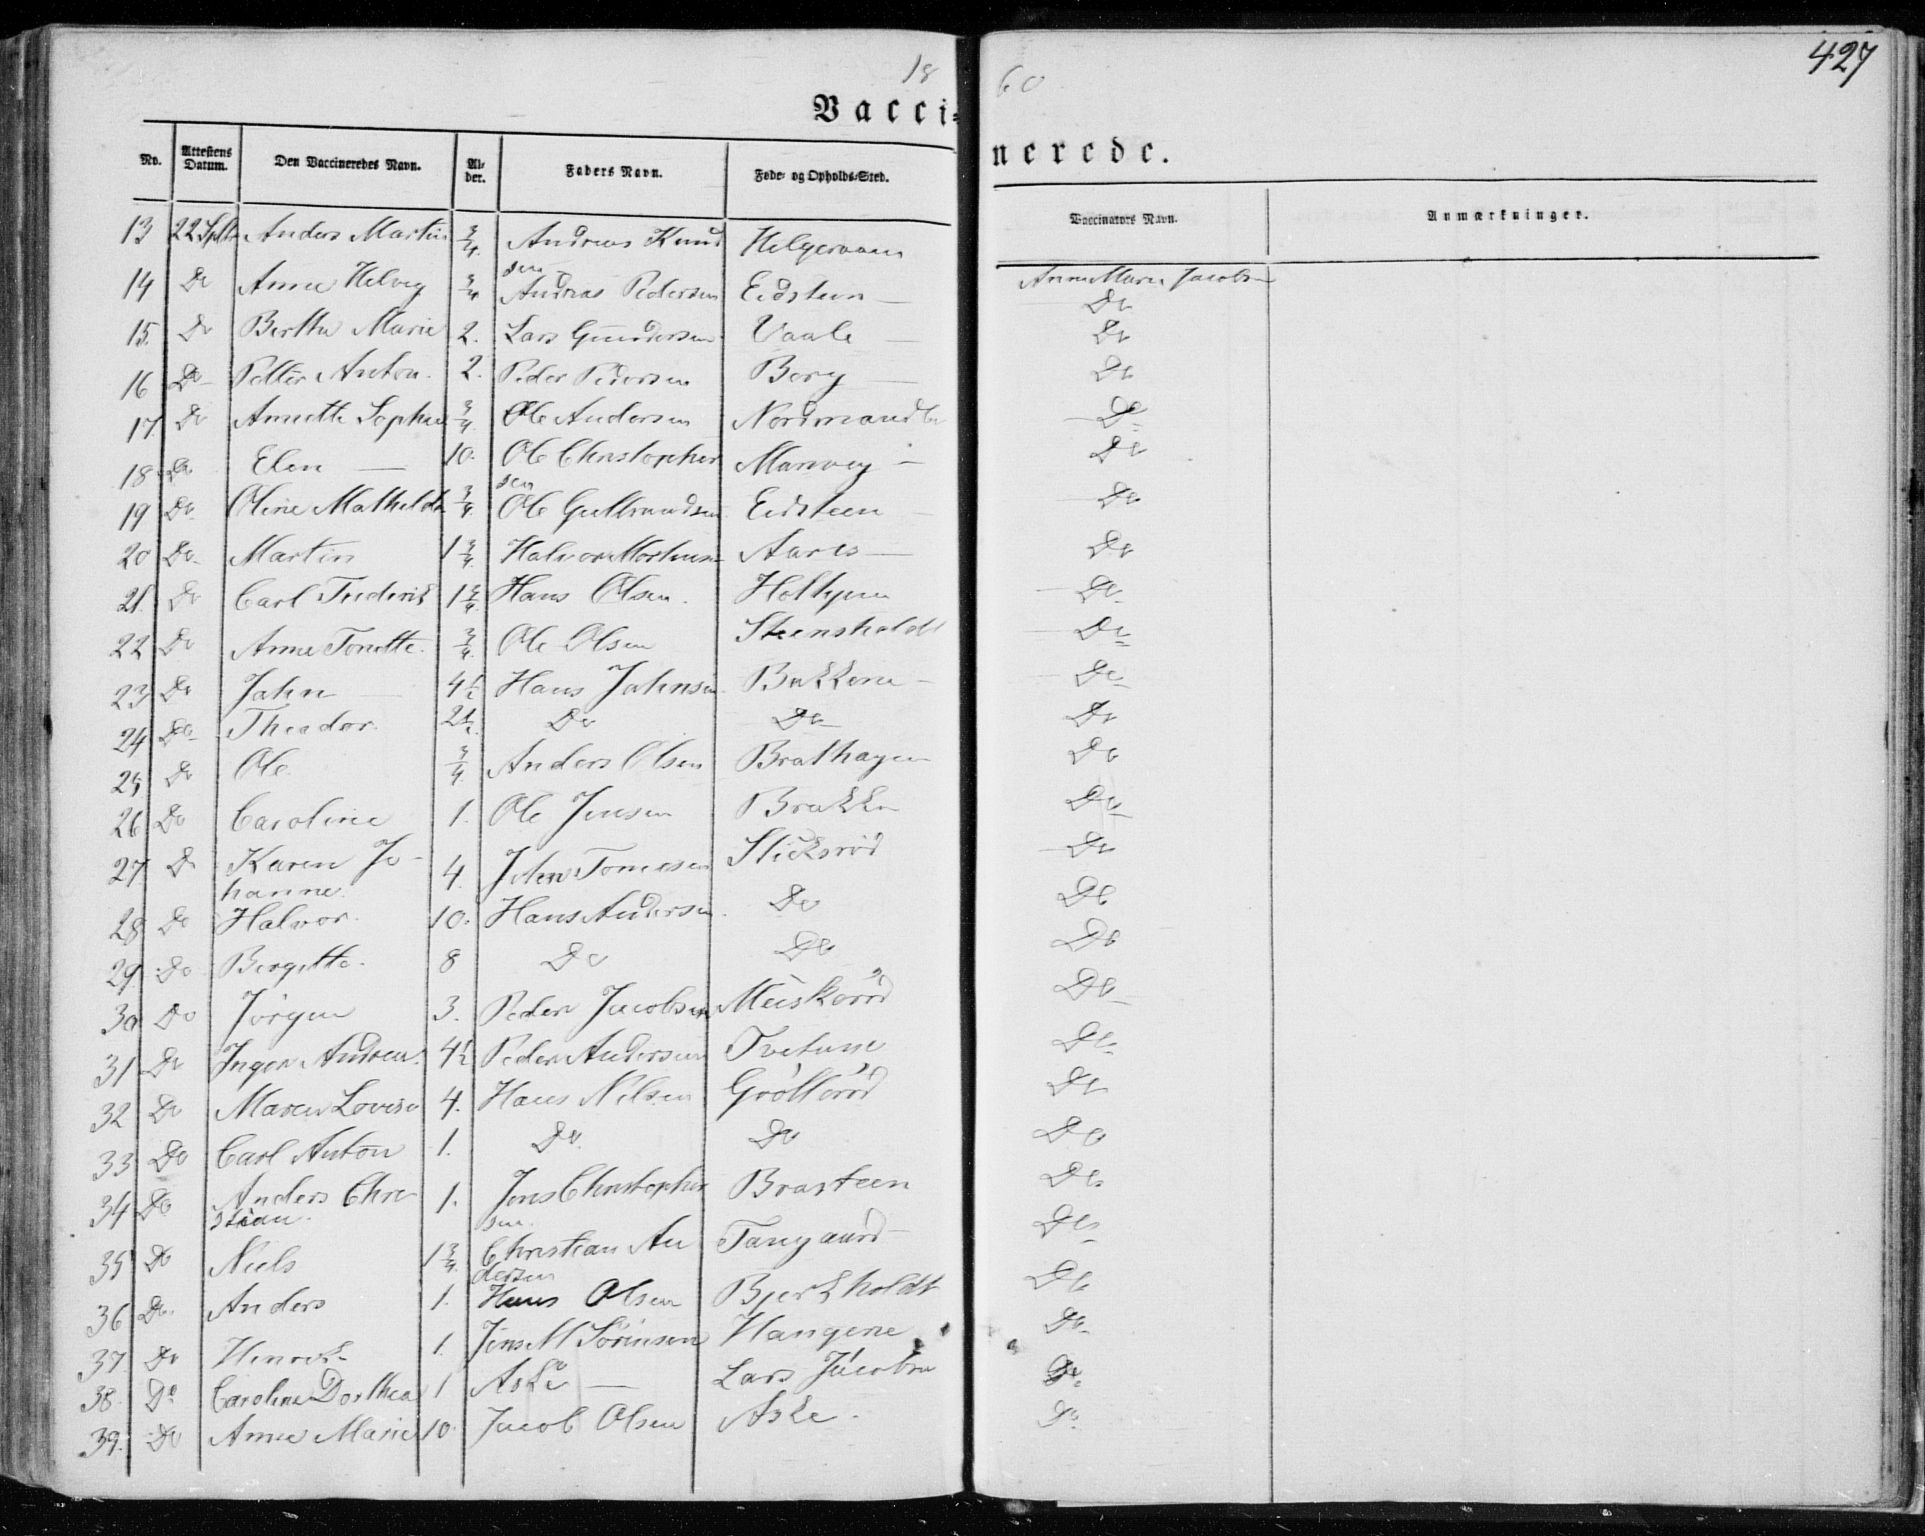 427
18 60
Vacci=
nerede.
No. Attestens Datum. Den Vaccineredes Navn. Al- der. Faders Navn. Føde- og Opholds-Sted. Vaccinators Navn. Anmærkninger.
13 22 Septb Anders Martin 3/4. Andreas Knud Helgeroaen Anne Marie Jacobs
sen
14 Do Anne Helvig 3/4 Andreas Pedersen Eidsteen — Do
15. Do Berthe Marie 2. Lars Gundersen Vaale — Do
16 Do Petter Anton. 2. Peder Pedersen Berg — Do
17 Do Annette Sophie 3/4. Ole Andersen Do
18 Do Elen — 10. Ole Christopher Manvig — Do
sen
19 Do Oline Mathilde 3/4. Ole Gulbrandsen Eidsteen — Do
20 Do Martin 1 3/4. Halvor Aaros — Do
21. Do Carl Frederik 1 3/4. Hans Olsen. Do
22 Do Anne Tonette. 3/4. Ole Olsen Steensholdt Do
23 Do Jahn — 4 1/2 Hans Jahnsen Bakkene — Do
24 Do Theodor. 2 1/2. Do Do Do
25 Do Ole 3/4 Anders Olsen Brathagen Do
26 Do Caroline 1. Ole Jensen Brække Do
27 Do Karen Jo- 4. John Tomesen Do
hanne.
28 Do Halvor. 10. Hans Andersen. Do Do
29 Do Bergitte. 8 Do Do Do
30 Do Jörgen 3. Peder Jacobsen Do
31 Do Inger Andrea. 4 1/2 Peder Andersen Tvetene Do
32 Do Maren Lovise 4. Hans Nilsen Do
33 Do Carl Anton 1. Do. Do Do
34 Do Anders Chri- 1. Jens Christopher Brarteen Do
stian. sen.
35 Do Niels 1 3/4. Christian An Tangaard — Do
dersen
36 Do. Anders 1. Hans Olsen Bjerkholdt Do
37. Do Henrik 1. Jens M Sörensen Hangene Do
38. Do Caroline Dorthea 1 Aske — Lars Jacobsen Do
39. Do Anne Marie 10. Jacob Olsen Aske. Do